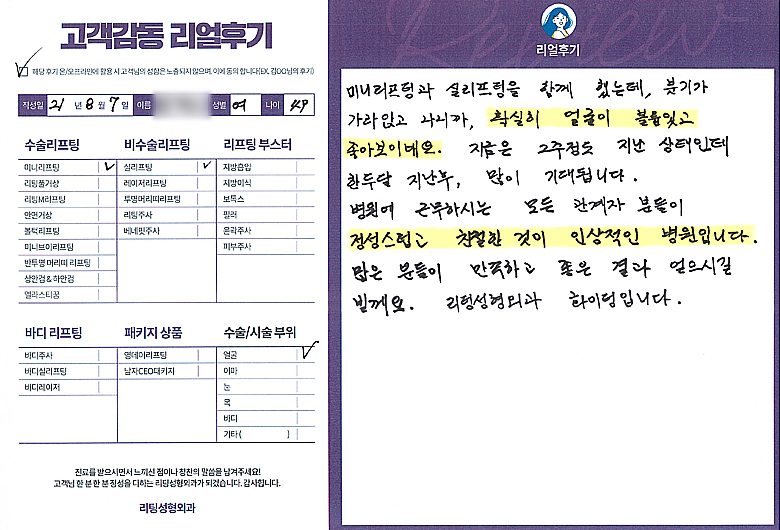 고객감동 리얼후기
해당 후기 온/오프라인에 활용 시 고객님의 성함은 노출되지 않으며, 이에 동의 합니다(EX. 김OO님의 후기)
작성일 21 년 8 월 7 일 이름 성별 여 나이 49
수술리프팅
미니리프팅
리팅풀거상
리팅M리프팅
안면거상
볼턱리프팅
미니브이리프팅
반투명 머리띠 리프팅
상안검 & 하안검
엘라스티꿈
비수술리프팅
실리프팅
레이저리프팅
투명머리띠리프팅
리팅주사
베네핏주사
리프팅 부스터
지방흡입
지방이식
보톡스
필러
윤곽주사
피부주사
바디 리프팅
바디주사
바디실리프팅
바디레이저
패키지 상품
영데이리프팅
남자CEO패키지
수술/시술 부위
얼굴
이마
눈
목
바디
기타( )
진료를 받으시면서 느끼신 점이나 칭찬의 말씀을 남겨주세요!
고객님 한 분 한 분 정성을 다하는 리팅성형외과가 되겠습니다. 감사합니다.
리팅성형외과
Review
리얼후기
미니리프팅과 실리프팅을 함께 했는데, 붓기가
가라앉고 나니까, 확실히 얼굴이 볼륨있고
좋아보이네요. 지금은 2주정도 지난 상태인데
한두달 지난후, 많이 기대됩니다.
병원에 근무하시는 모든 관계자 분들이
정성스럽고 친절한 것이 인상적인 병원입니다.
많은 분들이 만족하고 좋은 결과 얻으시길
빌께요. 리팅성형외과 화이팅입니다.